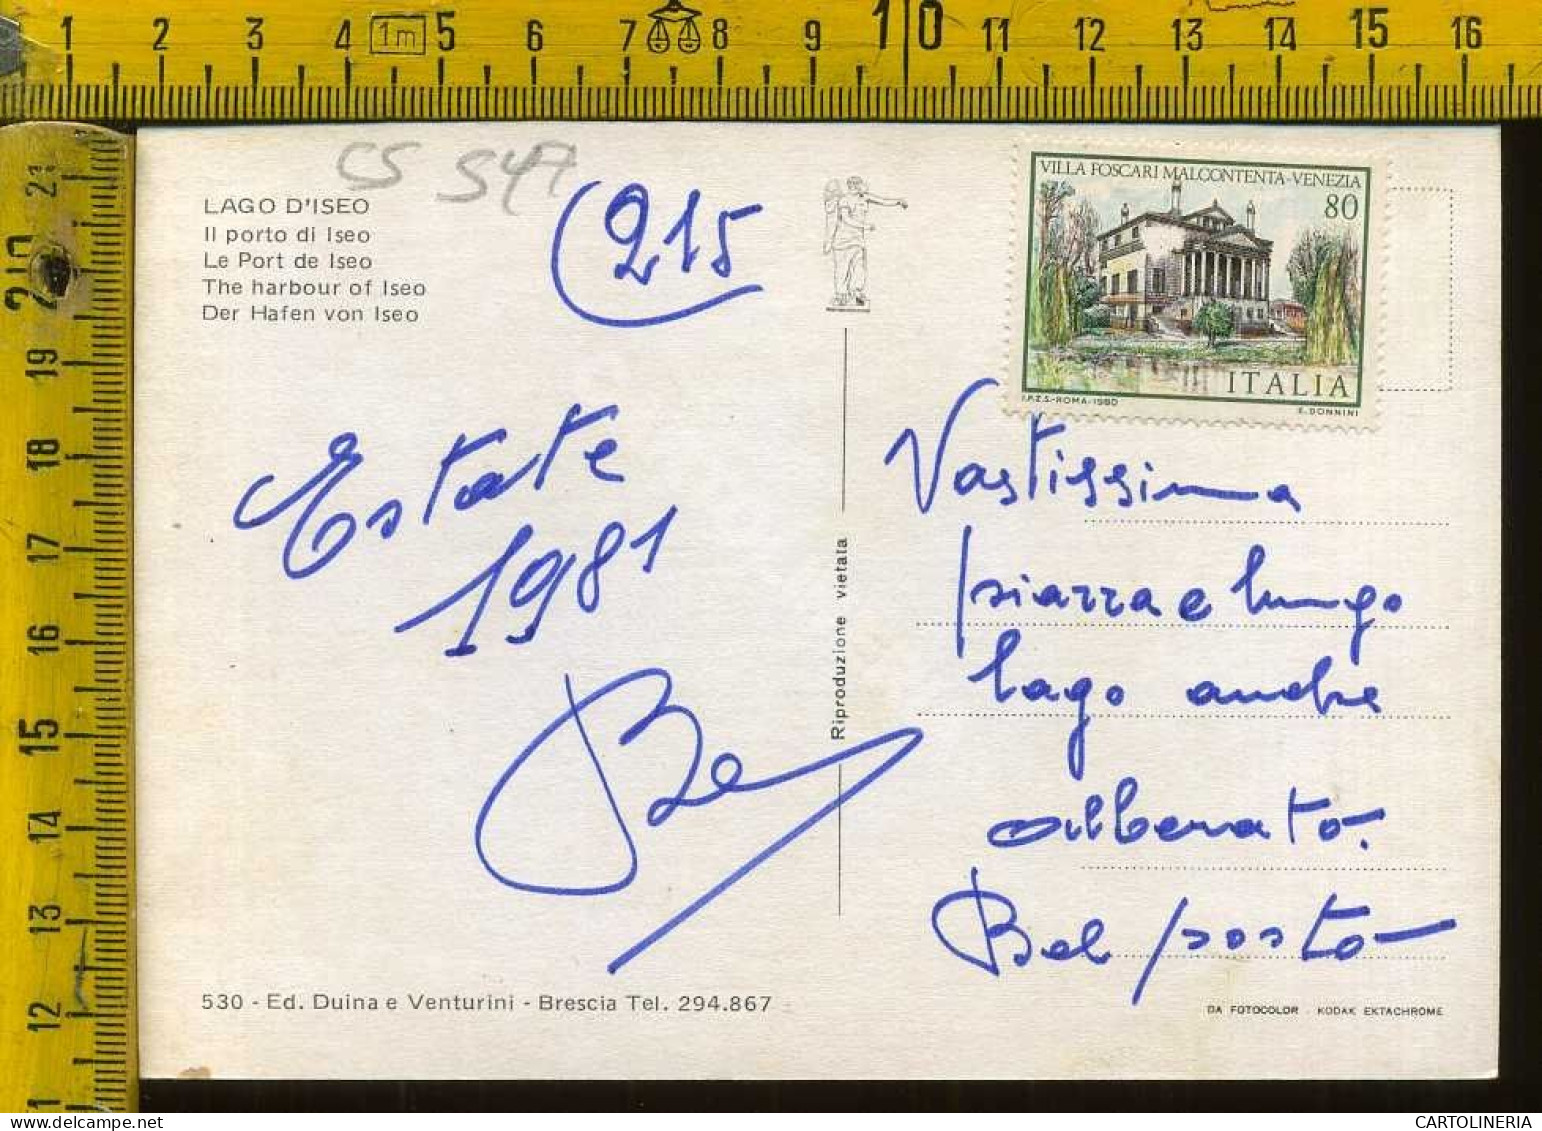 1 2 3 4 1m 5 6 7 8 9 10 11 12 13 14 15 16
21 20 19 18 17 16 15 14 13 12 11
CS 547
LAGO D'ISEO
Il porto di Iseo
Le Port de Iseo
The harbour of Iseo
Der Hafen von Iseo
215
VILLA FOSCARI MALCONTENTA-VENEZIA
80
ITALIA
I.P.Z.S.-ROMA-1980 E. DONNINI
Estate
1981
Riproduzione vietata
Vastissima
piazza e lungo
lago anche
alberato.
Bel posto
530 - Ed. Duina e Venturini - Brescia Tel. 294.867
DA FOTOCOLOR - KODAK EKTACHROME
CARTOLINERIA